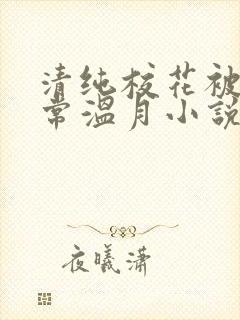 清纯校花被
常温月小説
夜曦潇